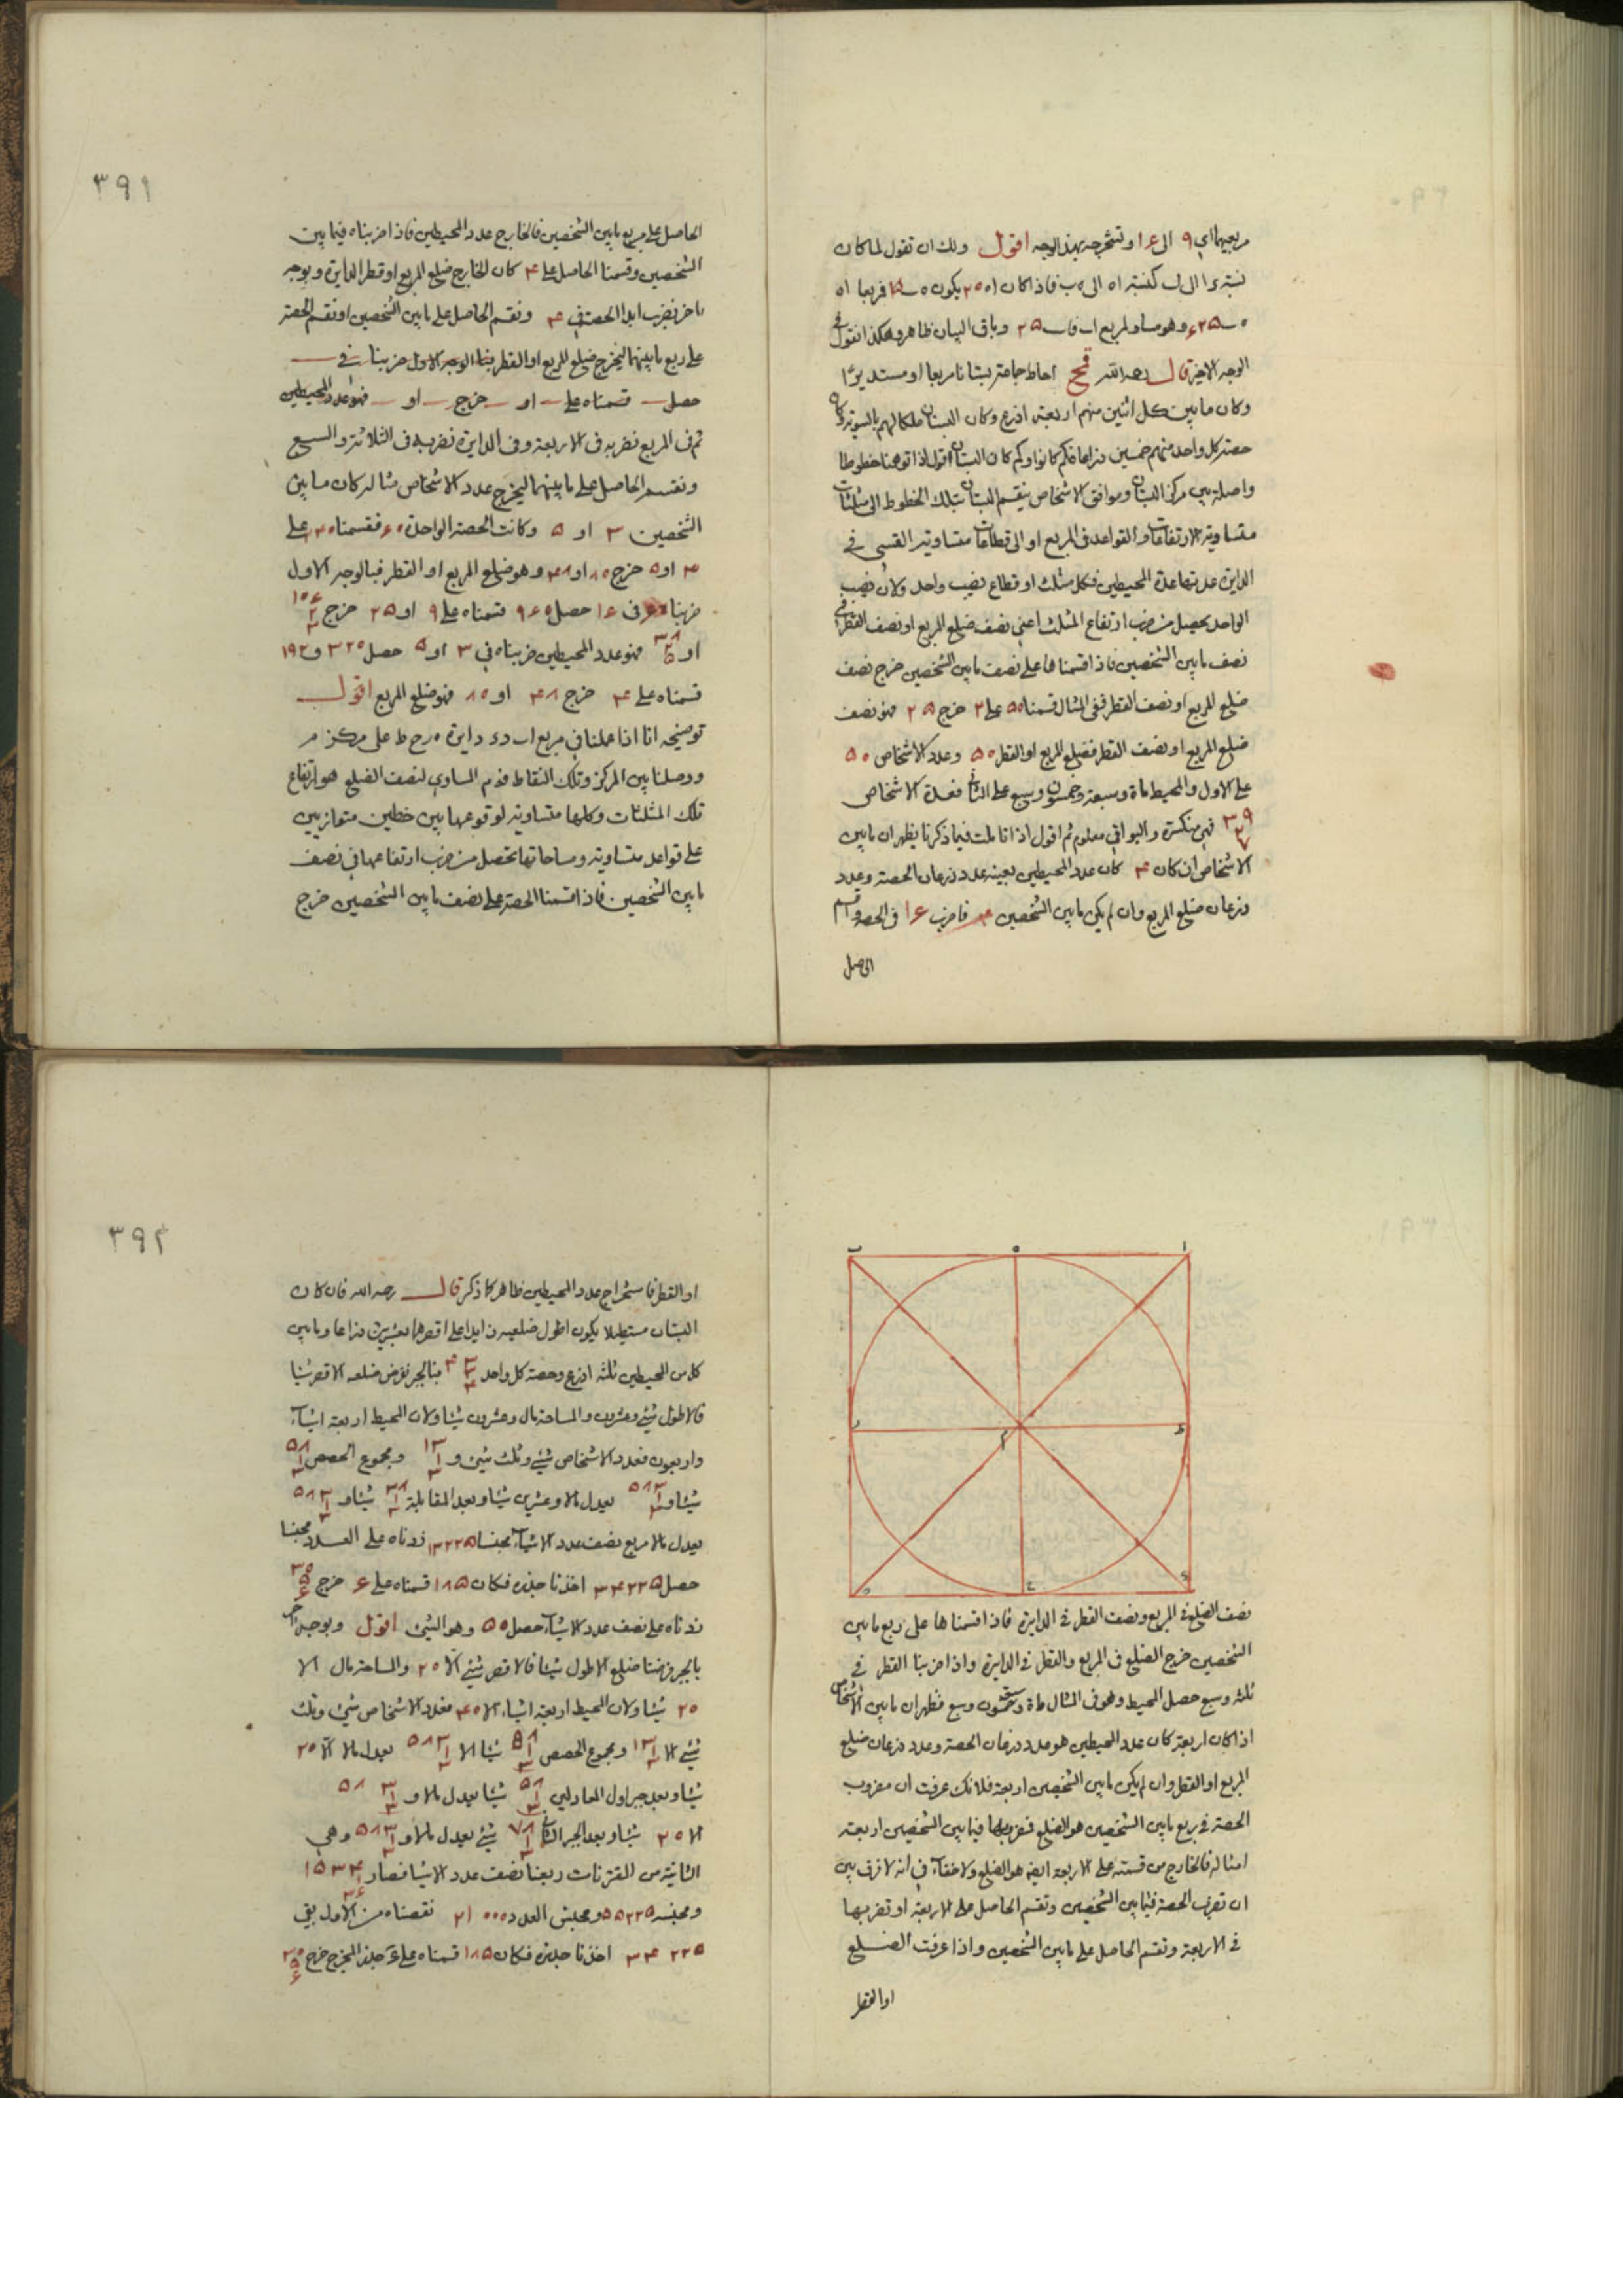 مربعيهما اي ٩ الى ١٦ وتستخرجه بهذا الوجه اقول ولك ان تقول لما كان
نسبة الى كنسبة اه الى ه ب فاذا كان اه ٢٠ يكون ه ب ١٥ فربعا اه
ه ب ٦٢٥ وهو مساو لمربع اب فاب ٢٥ وباقي البيان ظاهر وهكذا نقول في
الوجه الاخير قال رحمه الله قمح احاط جماعة بستانا مربعا او مستديرا
وكان ما بين كل اثنين منهم اربعة اذرع وكان البستان ملكا لهم بالسوية وكان
حصة كل واحد منهم خمسين ذراعا فكم كانوا وكم كان البستان اقول اذا توهمنا خطوطا
واصلة بين مركز البستان ومواقف الاشخاص ينقسم البستان بتلك الخطوط الى مثلثات
متساوية الارتفاعات والقواعد في المربع او الى قطاعات متساوية القسي في
الدايرة عدتها عدة المحيطين فكل مثلث او قطاع نصيب واحد ولان نصيب
الواحد يحصل من ضرب ارتفاع المثلث اعني نصف ضلع المربع او نصف القطر في
نصف ما بين الشخصين فاذا قسمناها على نصف ما بين الشخصين خرج نصف
ضلع المربع او نصف القطر ففي المثال قسمنا ٥٠ على ٢ خرج ٢٥ فهو نصف
ضلع المربع او نصف القطر فضلع المربع او القطر ٥٠ وعدد الاشخاص ٥٠
على الاول والمحيط ماة وسبعة وخمسون وسبع على الثاني فعدة الاشخاص
فهي منكسرة والبواقي معلوم ثم اقول اذا تاملت فيما ذكرنا يظهر ان ما بين
الاشخاص ان كان ٤ كان عدد المحيطين بعينه عدد ذرعان الحصة وعدد
ذرعان ضلع المربع وان لم يكن ما بين الشخصين ٤ فاضرب ١٦ في الحصة واقسم
الحاصل
٣٩١
الحاصل على مربع ما بين الشخصين فالخارج عدد المحيطين فاذا ضربناه فيما بين
الشخصين وقسمنا الحاصل على ٤ كان الخارج ضلع المربع او قطر الدايرة وبوجه
اخر نضرب ابدا الحصة في ٤ ونقسم الحاصل على ما بين الشخصين او نقسم الحصة
على ربع ما بينهما ليخرج ضلع المربع او القطر الوجه الاول ضربنا في
حصل قسمناه على او خرج او فهو عدد المحيطين
ثم في المربع نضربه في الاربعة وفي الدايرة نضربه في الثلاثة والسبع
ونقسم الحاصل على ما بينهما ليخرج عدد الاشخاص مثاله كان ما بين
الشخصين ٣ او ٥ وكانت الحصة الواحدة ٦٠ فقسمنا ٢٤٠ على
٣ او ٥ خرج ٨٠ او ٤٨ وهو ضلع المربع او القطر فبالوجه الاول
ضربنا ٦٠ في ١٦ حصل ٩٦٠ قسمناه على ٩ او ٢٥ خرج
او فهو عدد المحيطين ضربناه في ٣ او ٥ حصل ٣٢٠ و ١٩٢
قسمناه على ٤ خرج ٤٨ او ٨٠ فهو ضلع المربع اقول
توضيحه انا اذا عملنا في مربع اب دايرة ه ر ح ط على مركز م
ووصلنا بين المركز وتلك النقاط فه م المساوي لنصف الضلع هو ارتفاع
تلك المثلثات وكلها متساوية لوقوعها بين خطين متوازيين
على قواعد متساوية ومساحاتها تحصل من ضرب ارتفاعها في نصف
ما بين الشخصين فاذا قسمنا الحصة على نصف ما بين الشخصين خرج
ب ه ا
ر م ط
ح
نصف الضلع في المربع ونصف القطر في الدايرة فاذا قسمناها على ربع ما بين
الشخصين خرج الضلع في المربع والقطر في الدايرة واذا ضربنا القطر في
ثلثة وسبع حصل المحيط وهو في المثال ماة وسبعة وخمسون وسبع فظهر ان ما بين الاشخاص
اذا كان اربعة كان عدد المحيطين هو عدد ذرعان الحصة وعدد ذرعان ضلع
المربع او القطر وان لم يكن ما بين الشخصين اربعة فلانك عرفت ان مضروب
الحصة في ربع ما بين الشخصين هو الضلع فيما بين الشخصين اربعة
امثاله فالخارج من قسمته على الاربعة ايضه هو الضلع ولا خفاء في انه لا فرق بين
ان تضرب الحصة فيما بين الشخصين وتقسم الحاصل على الاربعة او تضربها
في الاربعة وتقسم الحاصل على ما بين الشخصين واذا عرفت الضلع
او القطر
٣٩٢
او القطر فاستخراج عدد المحيطين ظاهر كما ذكر قال رحمه الله فان كان
البستان مستطيلا يكون اطول ضلعيه زايدا على اقصرهما بعشرين ذراعا وما بين
كل من المحيطين ثلثة اذرع وحصة كل واحد فبالجبر نفرض ضلعه الاقصر شيئا
فالاطول شيئ وعشرون والمساحة مال وعشرون شيئا ولان المحيط اربعة اشياء
واربعون فعدد الاشخاص شيئ وثلث شيئ و ومجموع الحصص
شيئا و يعدل مالا وعشرين شيئا وبعد المقابلة شيئا و
يعدل مالا مربع نصف عدد الاشياء مجنسا ١٣٢٢٥ زدناه على العدد مجنسا
حصل ٣٤٢٢٥ اخذنا جذره فكان ١٨٥ قسمناه على ٦ خرج
زدناه على نصف عدد الاشياء حصل ٥٠ وهو الشيئ اقول وبوجه اخر
بالجبر فرضنا ضلع الاطول شيئا فالاقصر شيئ الا ٢٠ والمساحة مال الا
٢٠ شيئا ولان المحيط اربعة اشياء الا ٤٠ فعدد الاشخاص شيئ وثلث
شيئ الا ومجموع الحصص شيئا الا يعدل مالا الا ٢٠
شيئا وبعد جبر اول المعادلين شيئا يعدل مالا و
الا ٢٠ شيئا وبعد الجبر الثاني شيئ يعدل مالا و وهي
الثانية من المقترنات ربعنا نصف عدد الاشيا فصار
ومجنسه ٥٥٢٢٥ ومجنس العدد ٢١٠٠٠ نقصناه من الاول بقي
٣٤٢٢٥ اخذنا جذره فكان ١٨٥ قسمناه على ٦ جذر المخرج خرج